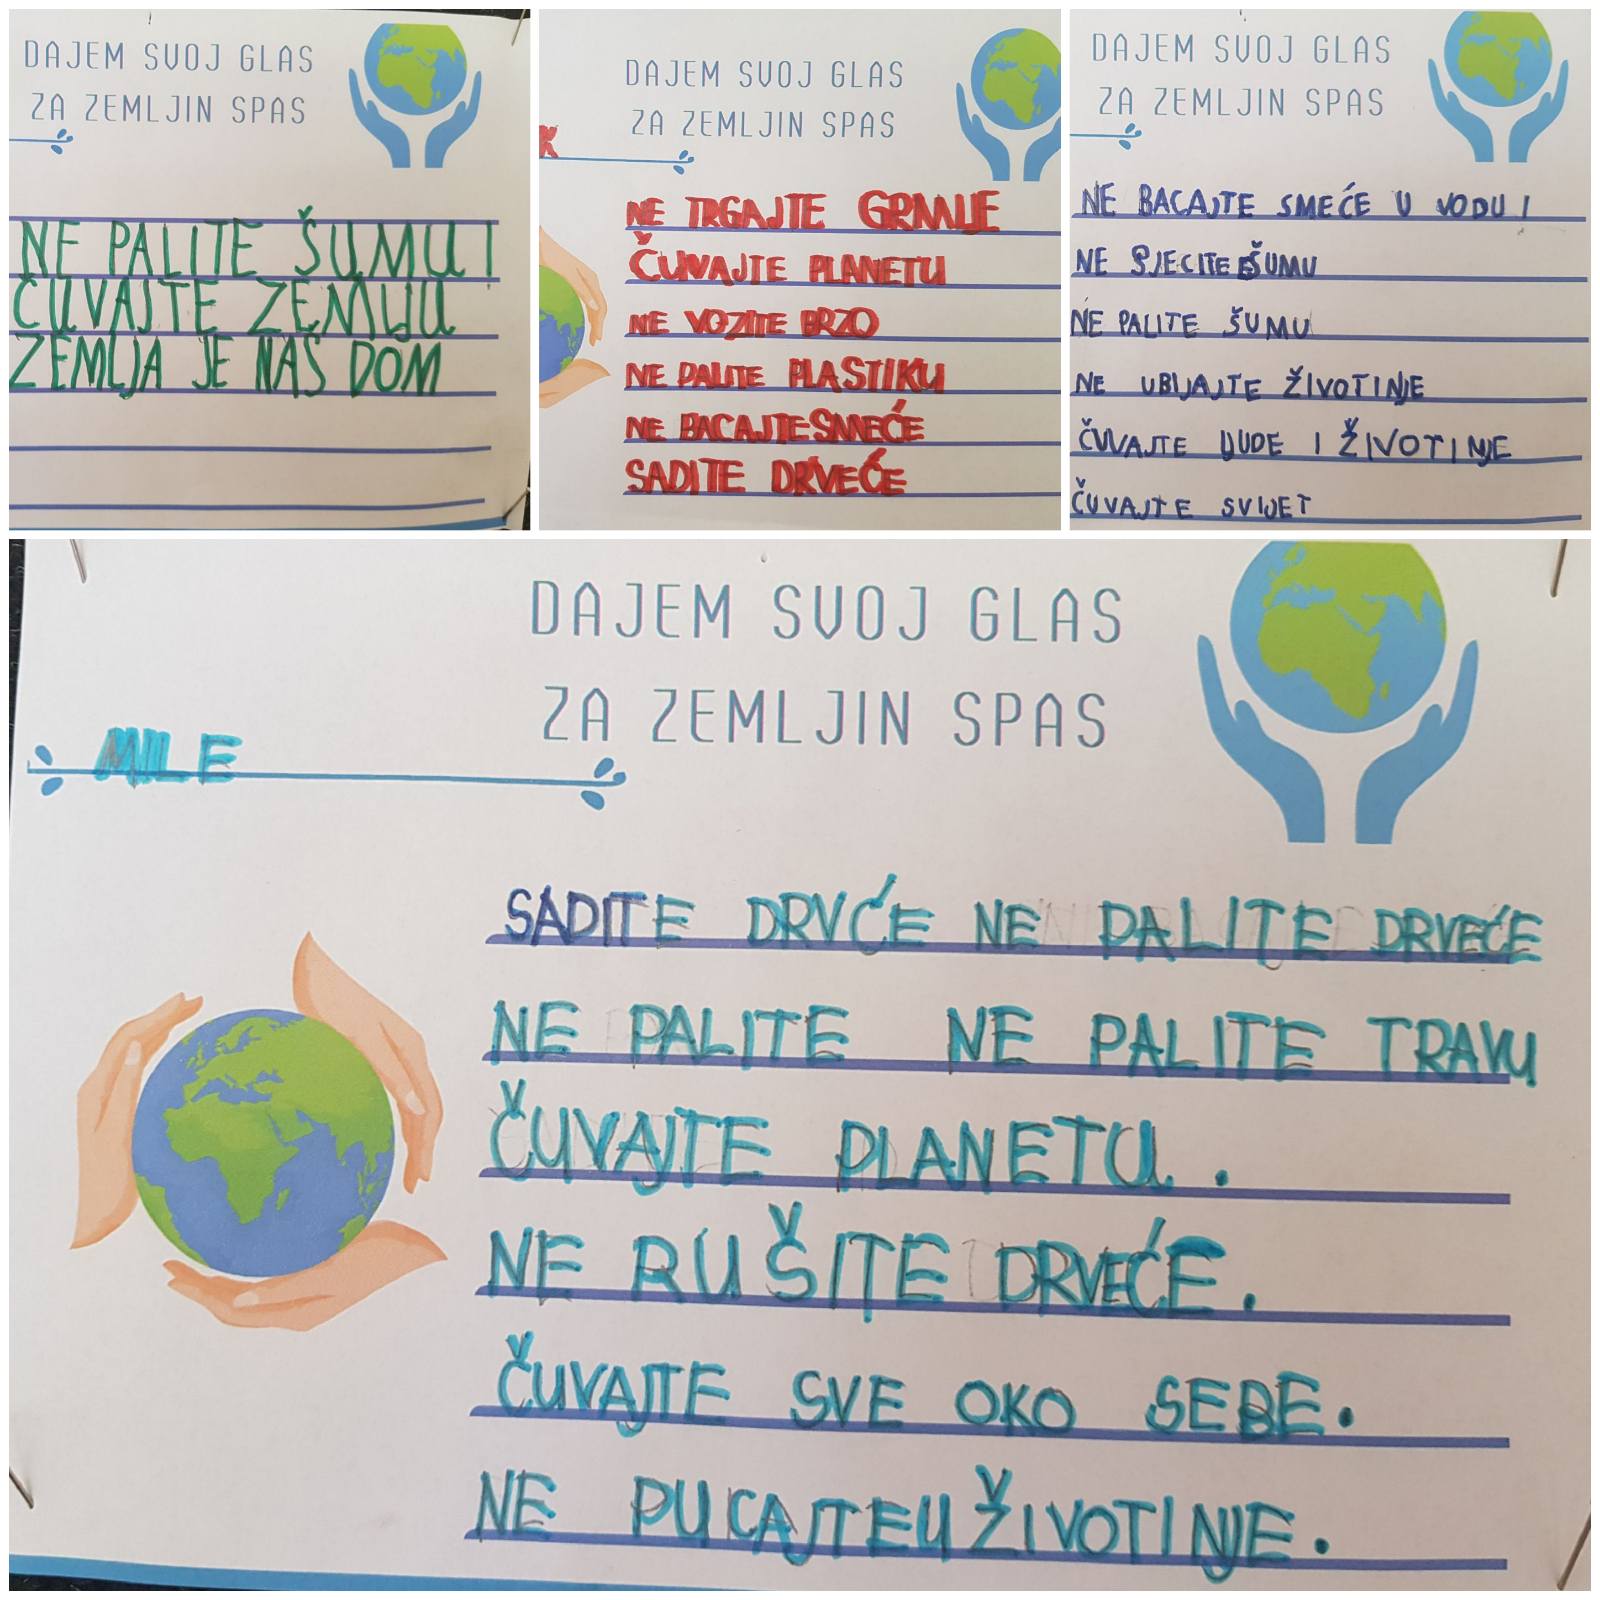 DAJEM SVOJ GLAS
ZA ZEMLJIN SPAS
NE PALITE ŠUMU I
ČUVAJTE ZEMLJU
ZEMLJA JE NAŠ DOM
DAJEM SVOJ GLAS
ZA ZEMLJIN SPAS
K
NE TRGAJTE GRMLJE
ČUVAJTE PLANETU
NE VOZITE BRZO
NE PALITE PLASTIKU
NE BACAJTE SMEĆE
SADITE DRVEĆE
DAJEM SVOJ GLAS
ZA ZEMLJIN SPAS
NE BACAJTE SMEĆE U VODU I
NE SJECITE ŠUMU
NE PALITE ŠUMU
NE UBIJAJTE ŽIVOTINJE
ČUVAJTE LJUDE I ŽIVOTINJE
ČUVAJTE SVIJET
DAJEM SVOJ GLAS
ZA ZEMLJIN SPAS
MILE
SADITE DRVĆE NE PALITE DRVEĆE
NE PALITE NE PALITE TRAVU
ČUVAJTE PLANETU.
NE RUŠITE DRVEĆE.
ČUVAJTE SVE OKO SEBE.
NE PUCAJTE U ŽIVOTINJE.